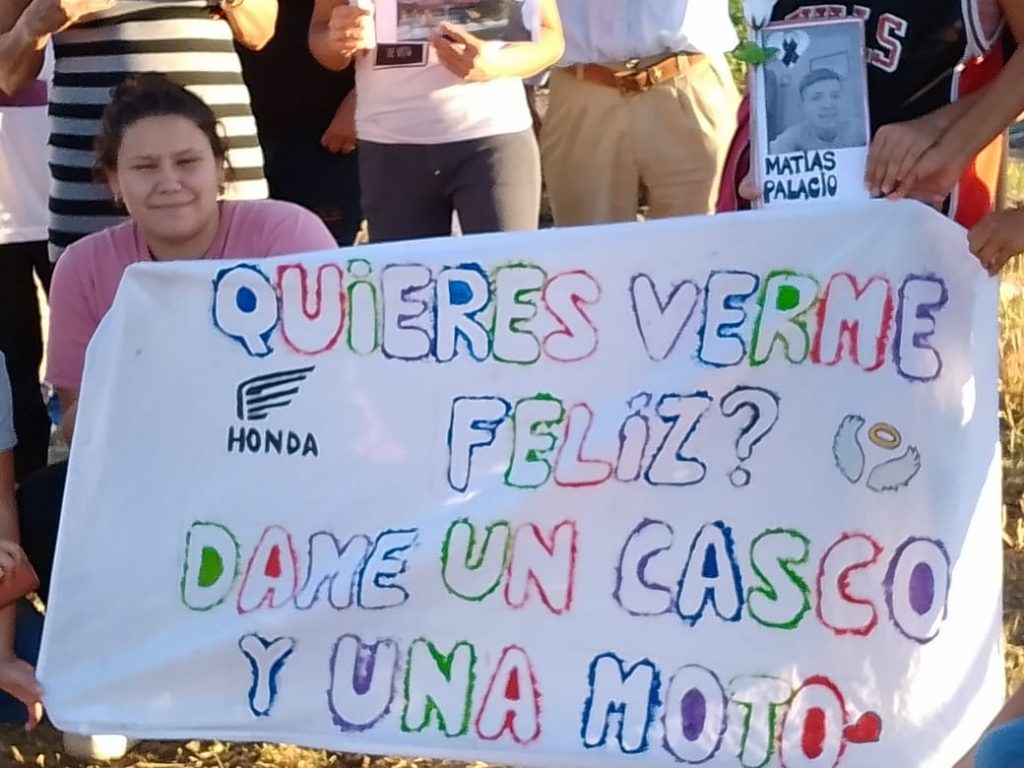 LLS
MATIAS
PALACIO
QUiERES VERME
FELíZ?
HONDA
DAME UN CASCO
Y UNA MOTO